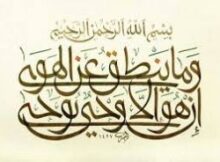 بسم الله الرحمن الرحيم
وما ينطق عن الهوى
إن هو إلا وحي يوحى